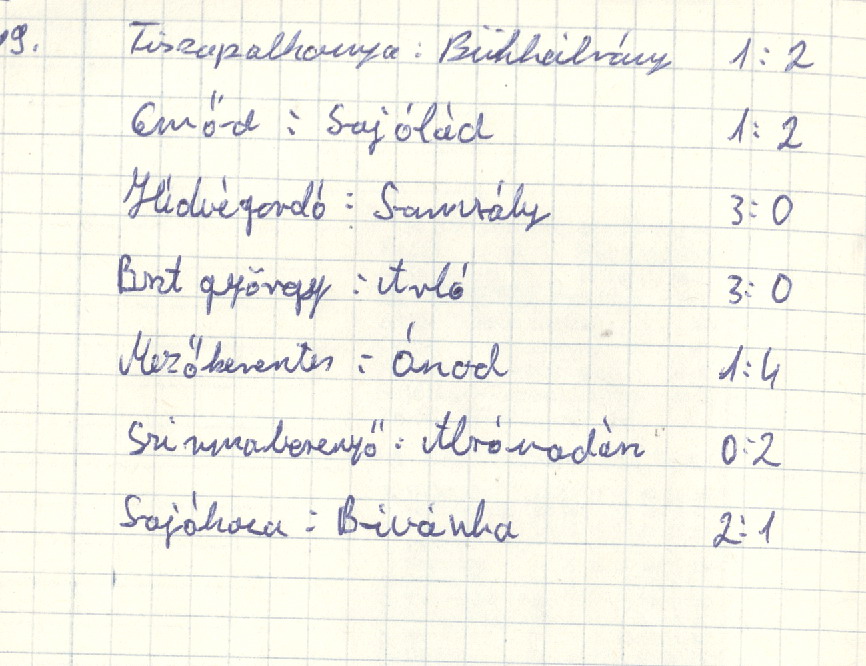 19. Tiszapalkonya : Bükkábrány 1 : 2
Emőd : Sajólád 1 : 2
Hídvégardó : Samsály 3 : 0
Bszt györgy : Arló 3 : 0
Mezőkeresztes : Ónod 1 : 4
Szirmabesenyő : Alsóvadász 0 : 2
Sajókaza : B-ivánka 2 : 1